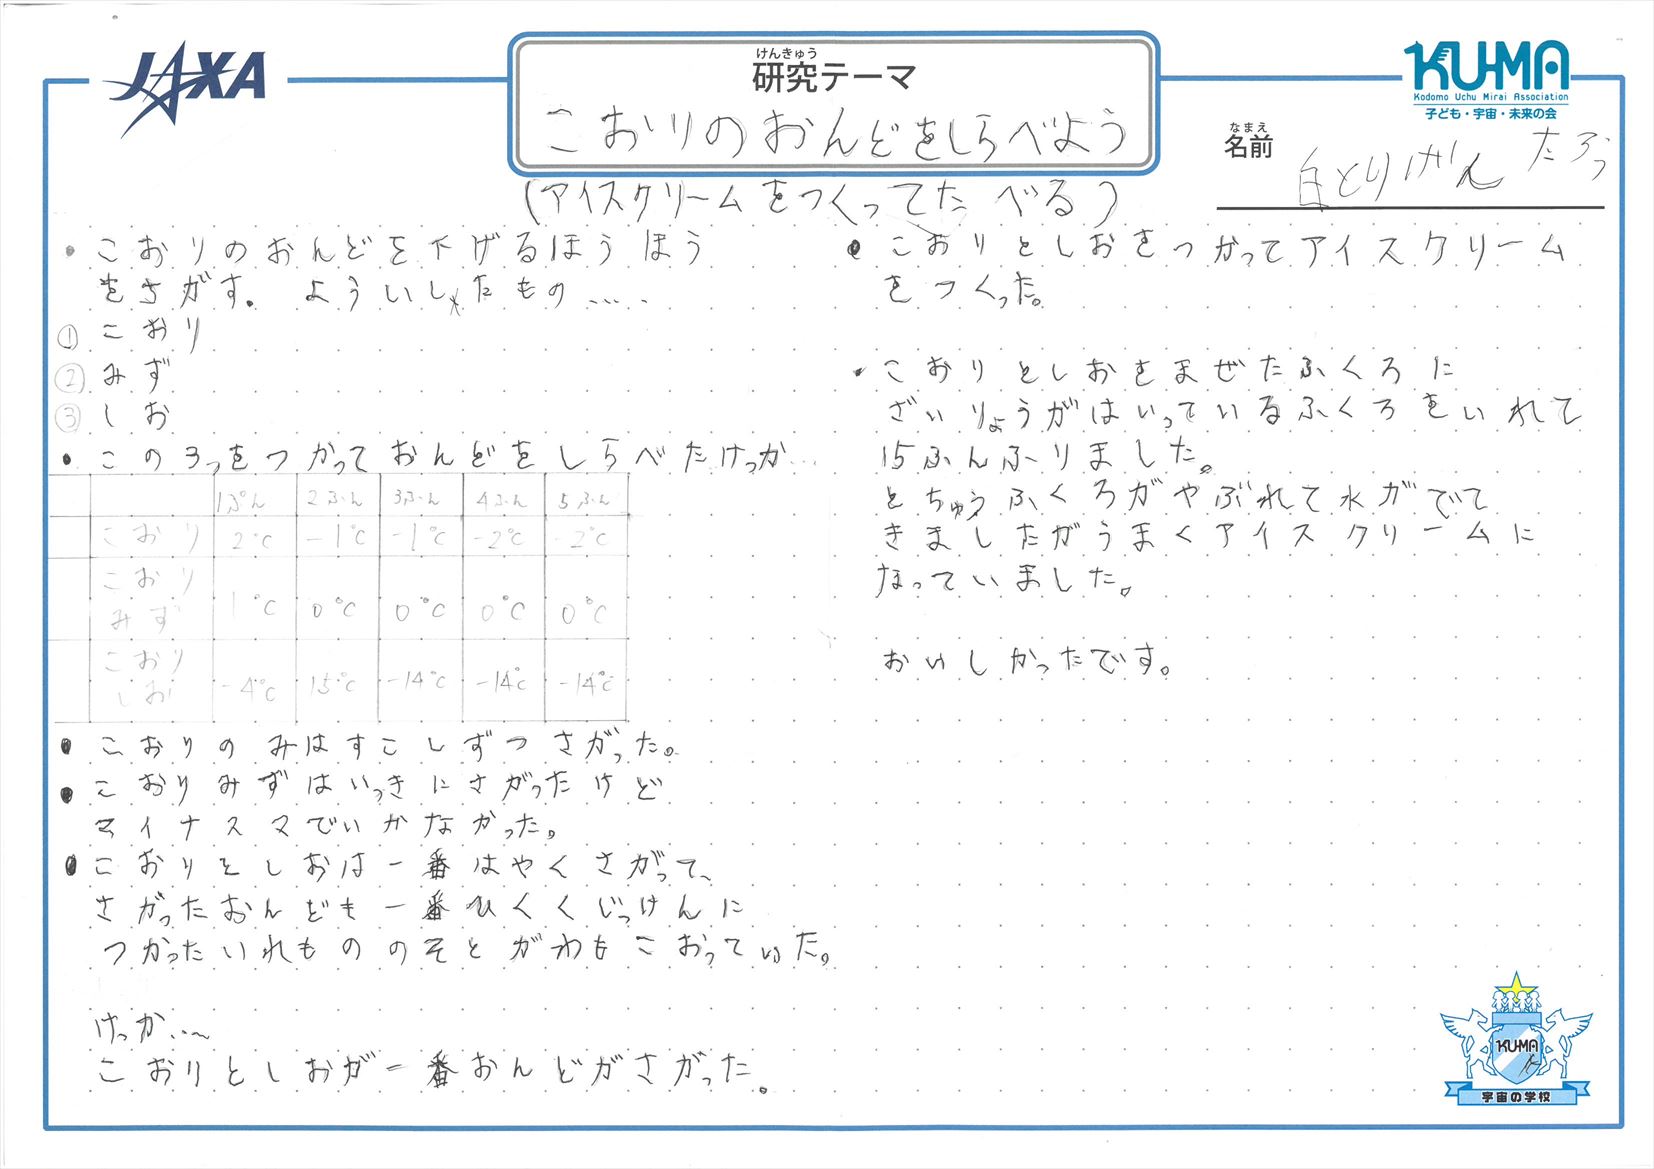 JAXA
けんきゅう
研究テーマ
こおりのおんどをしらべよう
(アイスクリームをつくってたべる)
KU-MA
Kodomo Uchu Mirai Association
子ども・宇宙・未来の会
なまえ
名前
白とりげん たろう
・こおりのおんどを下げるほうほう
をさがす。よういしたもの.....
① こおり
② みず
③ しお
・この3つをつかっておんどをしらべたけっか...
1ぷん 2ふん 3ふん 4ふん 5ふん
こおり 2℃ -1℃ -1℃ -2℃ -2℃
こおり
みず 1℃ 0℃ 0℃ 0℃ 0℃
こおり
しお -4℃ 15℃ -14℃ -14℃ -14℃
・こおりのみはすこしずつさがった。
・こおりみずはいっきにさがったけど
マイナスマでいかなかった。
・こおりとしおは一番はやくさがって、
さがったおんども一番ひくくじっけんに
つかったいれもののそとがわもこおっていた。
けっか...~
こおりとしおが一番おんどがさがった。
・こおりとしおをつかってアイスクリーム
をつくった。
・こおりとしおをまぜたふくろに
ざいりょうがはいっているふくろをいれて
15ふんふりました。
とちゅうふくろがやぶれて水がでて
きましたがうまくアイスクリームに
なっていました。
おいしかったです。
KUMA
宇宙の学校